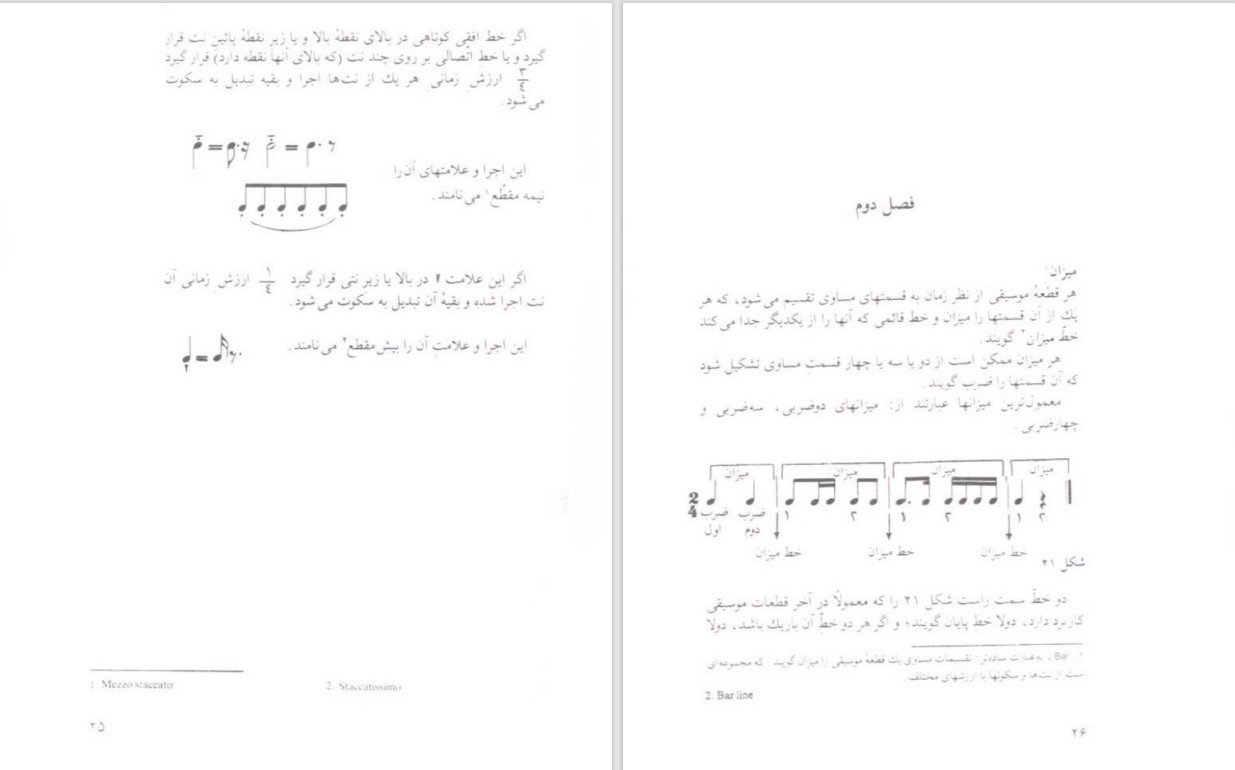 اگر خط افقی کوتاهی در بالای نقطهٔ بالا و یا زیر نقطهٔ پائین نت قرار
گیرد و یا خط اتّصالی بر روی چند نت (که بالای آنها نقطه دارد) قرار گیرد
۳/۴ ارزشِ زمانیِ هر یك از نت‌ها اجرا و بقیه تبدیل به سکوت
می‌شود.
این اجرا و علامتهای آن را
نیمه مقطّع۱ می‌نامند.
اگر این علامت در بالا یا زیر نتی قرار گیرد ۱/۴ ارزشِ زمانی آن
نت اجرا شده و بقیهٔ آن تبدیل به سکوت می‌شود.
این اجرا و علامتِ آن را بیش‌مقطع۲ می‌نامند.
1. Mezzo staccato
2. Staccatissimo
۲۵
فصل دوم
میزان۱
هر قطعهٔ موسیقی از نظر زمان به قسمتهای مساوی تقسیم می‌شود، که هر
یك از آن قسمتها را میزان و خط قائمی که آنها را از یکدیگر جدا می‌کند
خطّ میزان۲ گویند.
هر میزان ممکن است از دو یا سه یا چهار قسمتِ مساوی تشکیل شود
که آن قسمتها را ضرب گویند.
معمول‌ترین میزانها عبارتند از: میزانهای دوضربی، سه‌ضربی و
چهارضربی.
میزان میزان میزان میزان
2/4
ضرب اول ضرب دوم ۱ ۲ ۱ ۲ ۱ ۲
خط میزان خط میزان خط میزان
شکل ۲۱
دو خطّ سمت راست شکل ۲۱ را که معمولاً در آخر قطعات موسیقی
کاربرد دارد، دولا خطِ پایان گویند؛ و اگر هر دو خطِّ آن باریك باشد، دولا
۱. Bar، به‌عبارت ساده‌تر: تقسیمات مساوی یك قطعهٔ موسیقی را میزان گویند. که مجموعه‌ای
است از نت‌ها و سکوتها با ارزشهای مختلف.
2. Bar line
۲۶